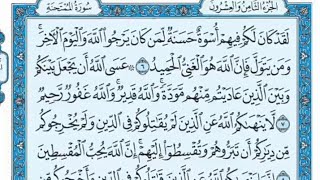 الجزء الثامن والعشرون سورة الممتحنة
لَقَدْ كَانَ لَكُمْ فِيهِمْ أُسْوَةٌ حَسَنَةٌ لِمَن كَانَ يَرْجُوا اللَّهَ وَالْيَوْمَ الْآخِرَ
وَمَن يَتَوَلَّ فَإِنَّ اللَّهَ هُوَ الْغَنِيُّ الْحَمِيدُ ٦ عَسَى اللَّهُ أَن يَجْعَلَ بَيْنَكُمْ
وَبَيْنَ الَّذِينَ عَادَيْتُم مِّنْهُم مَّوَدَّةً وَاللَّهُ قَدِيرٌ وَاللَّهُ غَفُورٌ رَّحِيمٌ
٧ لَا يَنْهَاكُمُ اللَّهُ عَنِ الَّذِينَ لَمْ يُقَاتِلُوكُمْ فِي الدِّينِ وَلَمْ يُخْرِجُوكُم
مِّن دِيَارِكُمْ أَن تَبَرُّوهُمْ وَتُقْسِطُوا إِلَيْهِمْ إِنَّ اللَّهَ يُحِبُّ الْمُقْسِطِينَ